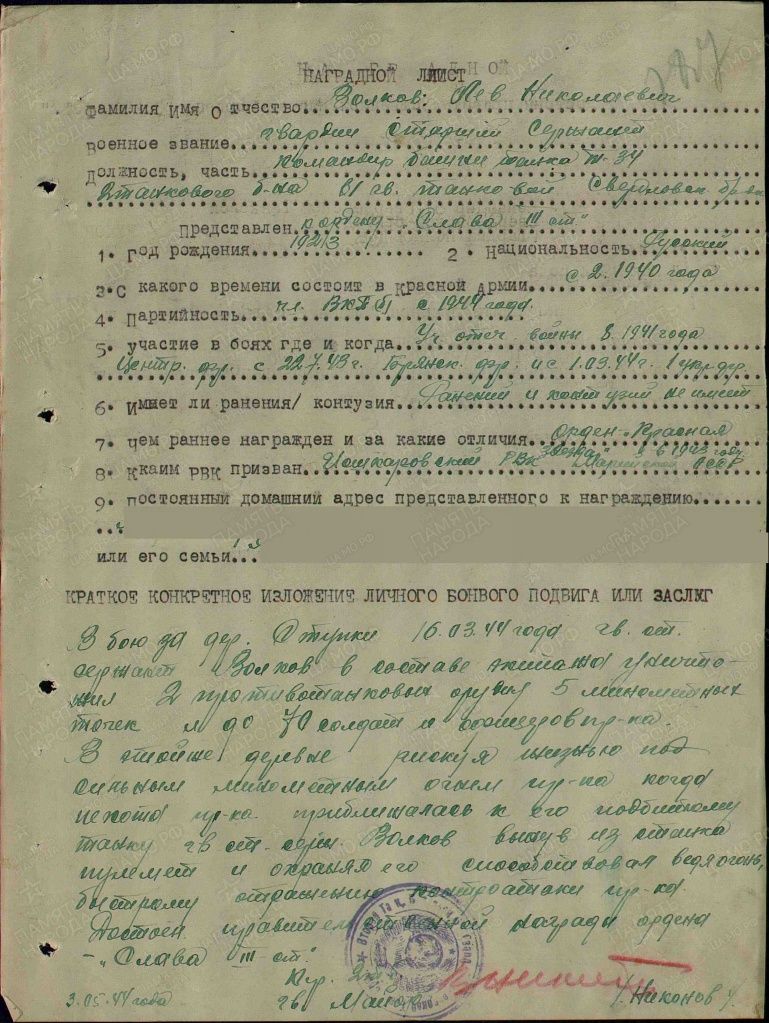 НАГРАДНОЙ ЛИИСТ
Фамилия Имя О тчество Волков Лев Николаевич
Военное звание гвардии Старший Сержант
Должность, часть Командир башни танка Т-34
2 танкового б-на 61 гв. танковой Свердловск. бр-ды
Представлен к ордену "Слава III ст"
1. Год рождения 1923 2. Национальность Русский
3. С какого времени состоит в Красной Армии с 2. 1940 года
4. Партийность чл. ВКП(б) с 1944 года.
5. участие в боях где и когда Уч. отеч. войны в 1941 года
Центр. фр. с 22.7.43 г. Брянск. фр. и с 1.03.44 г. 1 укр. фр.
6. Имеет ли ранения/ контузия Ранений и контузий не имеет
7. Чем раннее награжден и за какие отличия орден "Красная
Звезда" в 1943 году
8. Ккаим РВК призван РВК Марийской АССР
9. Постоянный домашний адрес представленного к награждению
или его семьи
КРАТКОЕ КОНКРЕТНОЕ ИЗЛОЖЕНИЕ ЛИЧНОГО БОНВОГО ПОДВИГА ИЛИ ЗАСЛУГ
В бою за дер. Ступки 16.03.44 года гв. ст.
сержант Волков в составе экипажа уничто-
жил 2 противотанковых орудия 5 минометных
точек и до 70 солдат и офицеров пр-ка.
В этой же деревне рискуя жизнью под
сильным минометным огнем пр-ка когда
пехота пр-ка приближалась к его подбитому
танку гв ст. серж. Волков вынув из танка
пулемет и охраняя его способствовал ведя огонь,
быстрому отражению контратаки пр-ка.
Достоен правительственной награды ордена
- "Слава III ст."
гв. Майор /Никонов/
3.05.44 года
ПАМЯТЬ НАРОДА